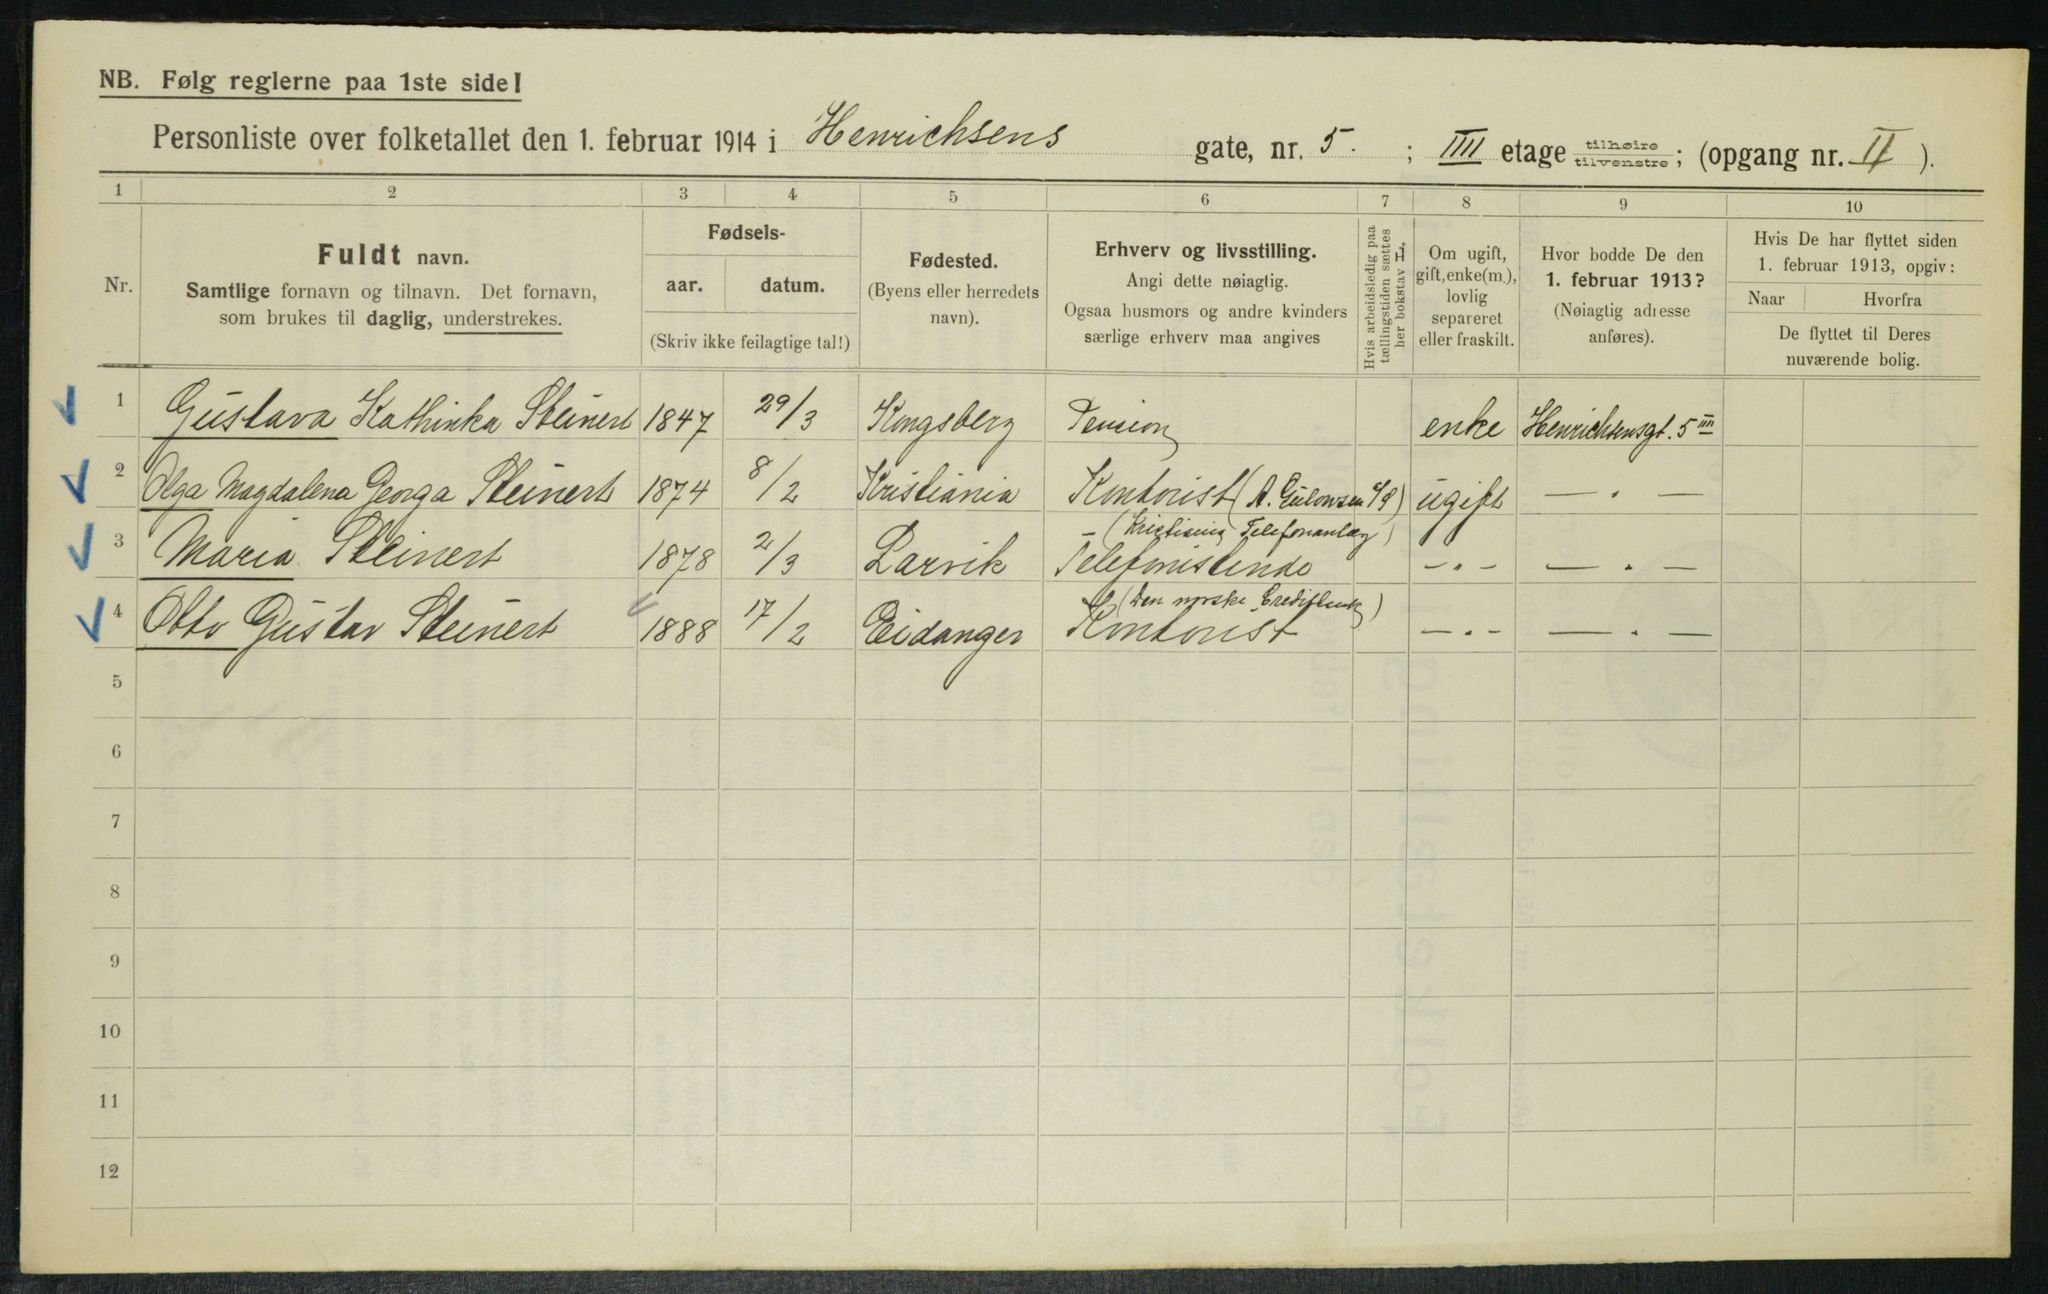 NB. Følg reglerne paa 1ste side!
Personliste over folketallet den 1. februar 1914 i Henrichsens gate, nr. 5. ; IIII etage tilhøire tilvenstre; (opgang nr. II ).
1 2 3 4 5 6 7 8 9 10
Nr.
Fuldt navn.
Samtlige fornavn og tilnavn. Det fornavn,
som brukes til daglig, understrekes.
Fødsels-
aar. datum.
(Skriv ikke feilagtige tal!)
Fødested.
(Byens eller herredets
navn).
Erhverv og livsstilling.
Angi dette nøiagtig.
Ogsaa husmors og andre kvinders
særlige erhverv maa angives
Hvis arbeidsledig paa
tællingstiden sættes
her bokstav L.
Om ugift,
gift, enke(m.),
lovlig
separeret
eller fraskilt.
Hvor bodde De den
1. februar 1913?
(Nøiagtig adresse
anføres).
Hvis De har flyttet siden
1. februar 1913, opgiv:
Naar Hvorfra
De flyttet til Deres
nuværende bolig.
1 Gustava Kathinka Steinert 1847 29/3 Kongsberg Pension enke Henrichsensgt. 5 IIII
2 Olga Magdalena Georga Steinert 1874 8/2 Kristiania Kontorist (A. Gulowsen A/S) ugift — " —
(Kristiania Telefonanlæg)
3 Maria Steinert 1878 2/3 Larvik Telefonistinde — " — — " —
(Den norske Creditbank)
4 Otto Gustav Steinert 1888 17/2 Eidanger Kontorist — " — — " —
5
6
7
8
9
10
11
12